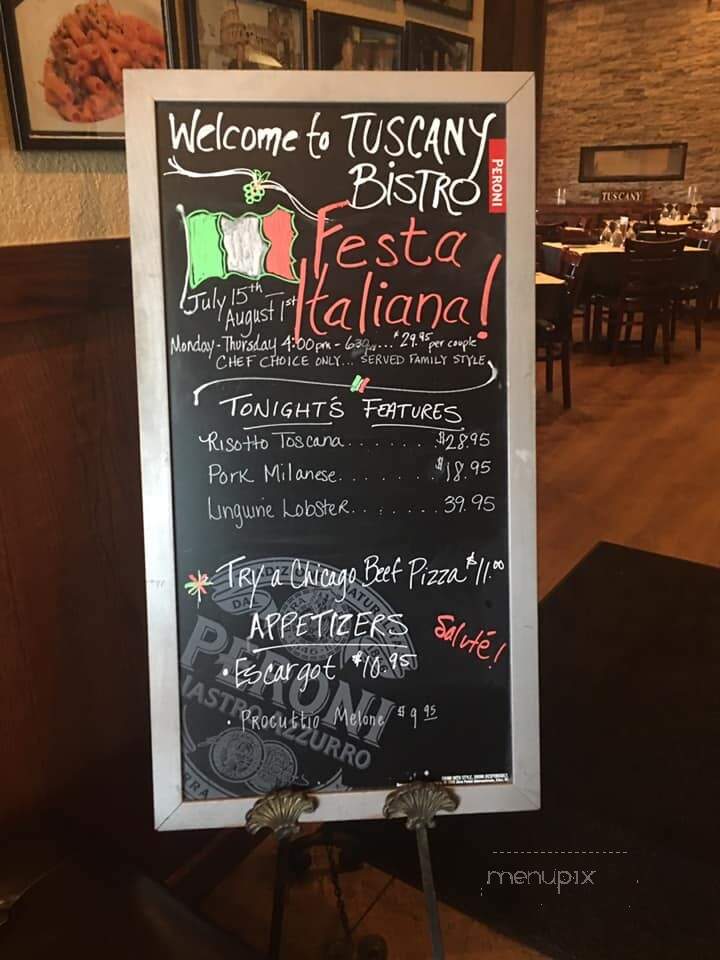 Welcome to TUSCANY
BISTRO
PERONI
Festa
Italiana!
July 15th
August 1st
Monday - Thursday 4:00pm - 630pm... $29.95 per couple
CHEF CHOICE ONLY... SERVED FAMILY STYLE
TONIGHT'S FEATURES
Risotto Toscana....... $28.95
Pork Milanese....... $18.95
Linguine Lobster....... 39.95
Try a Chicago Beef Pizza $11.00
APPETIZERS
Saluté!
• Escargot $10.95
• Procuttio Melone $9 95
PERONI
NASTRO AZZURRO
TUSCANY
menupix